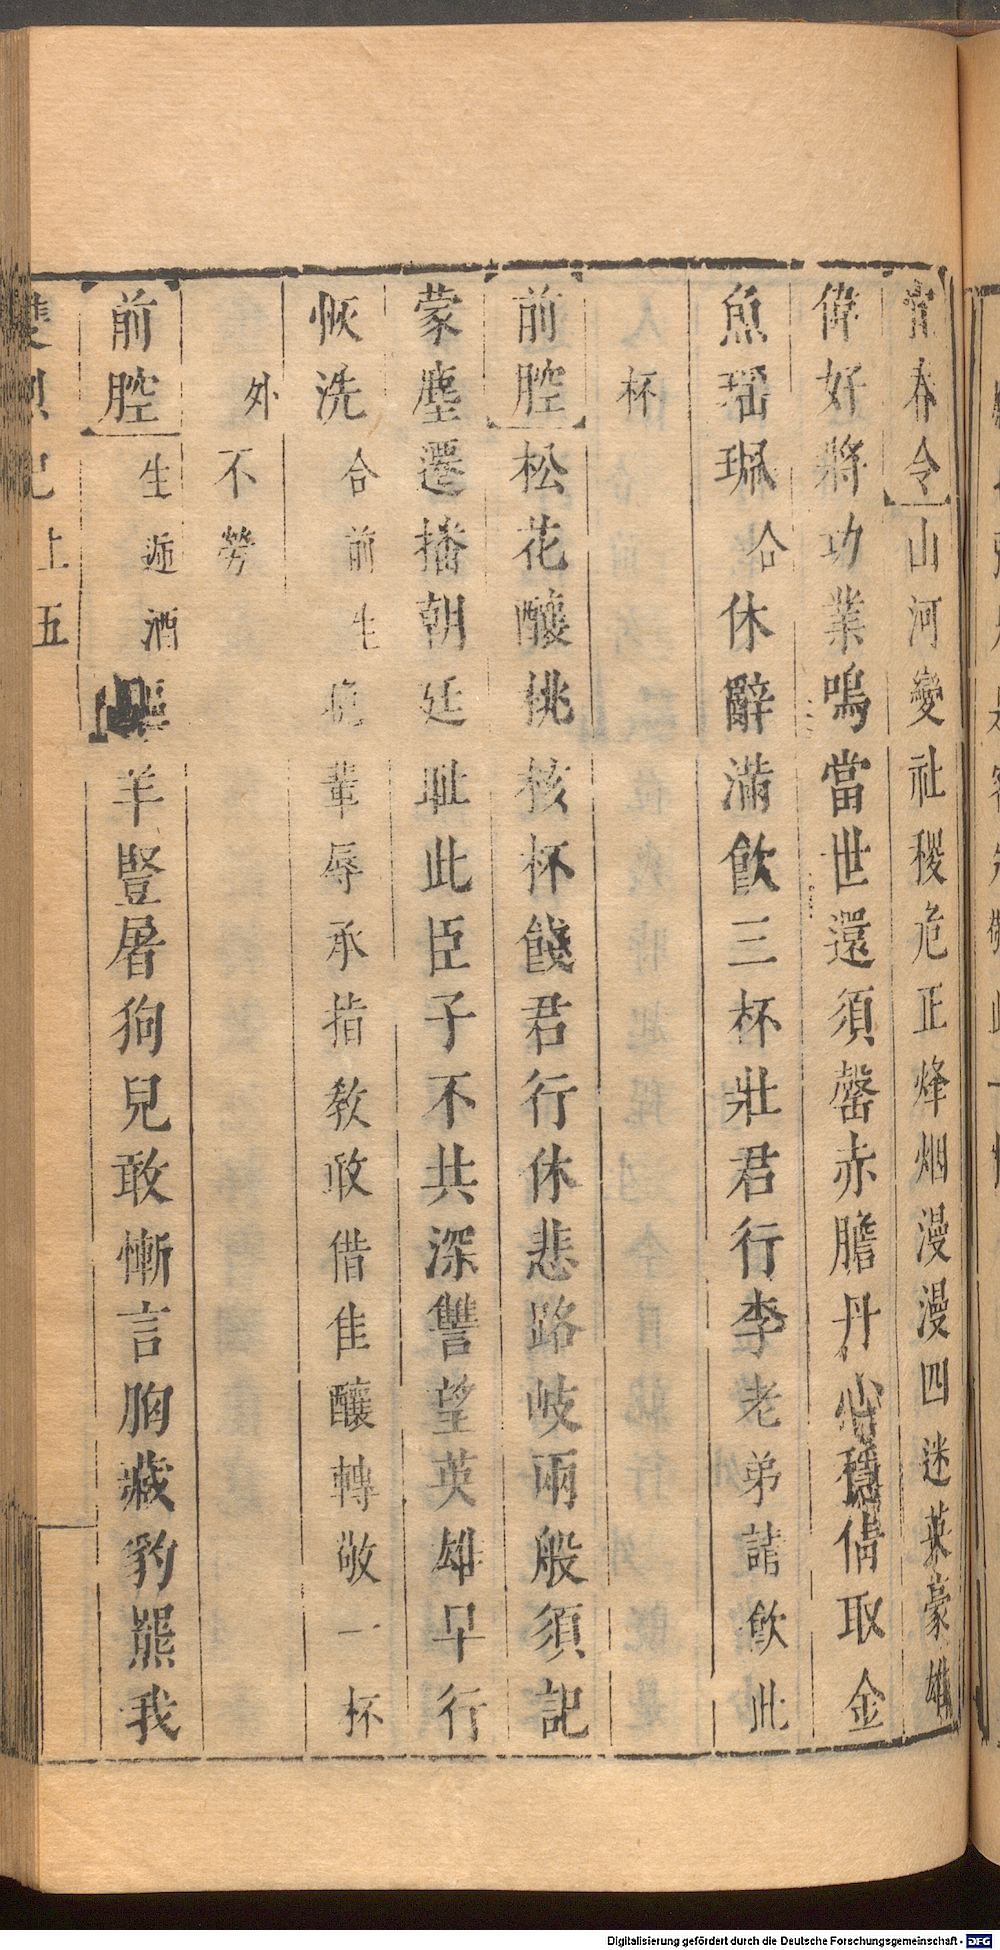 宵春令山河變社稷危正烽烟漫漫四迷英豪雄
偉好將功業鳴當世還須罄赤膽丹心穩倩取金
魚瑶珮合休辭滿飲三杯壯君行李老弟請飲此
杯
前腔松花釀桃核杯餞君行休悲路岐兩般須記
蒙塵遷播朝廷耻此臣子不共深讐望英雄早行
恢洗合前生晚輩辱承指教敢借佳釀轉敬一杯
外不勞
前腔生遞酒羊豎屠狗兒敢慚言胸藏豹羆我
雙烈記上五
Digitalisierung gefördert durch die Deutsche Forschungsgemeinschaft - DFG